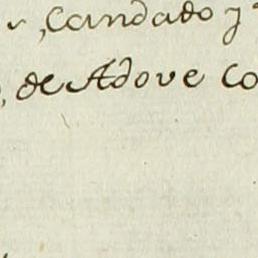 , Candado y
, de Adove Co